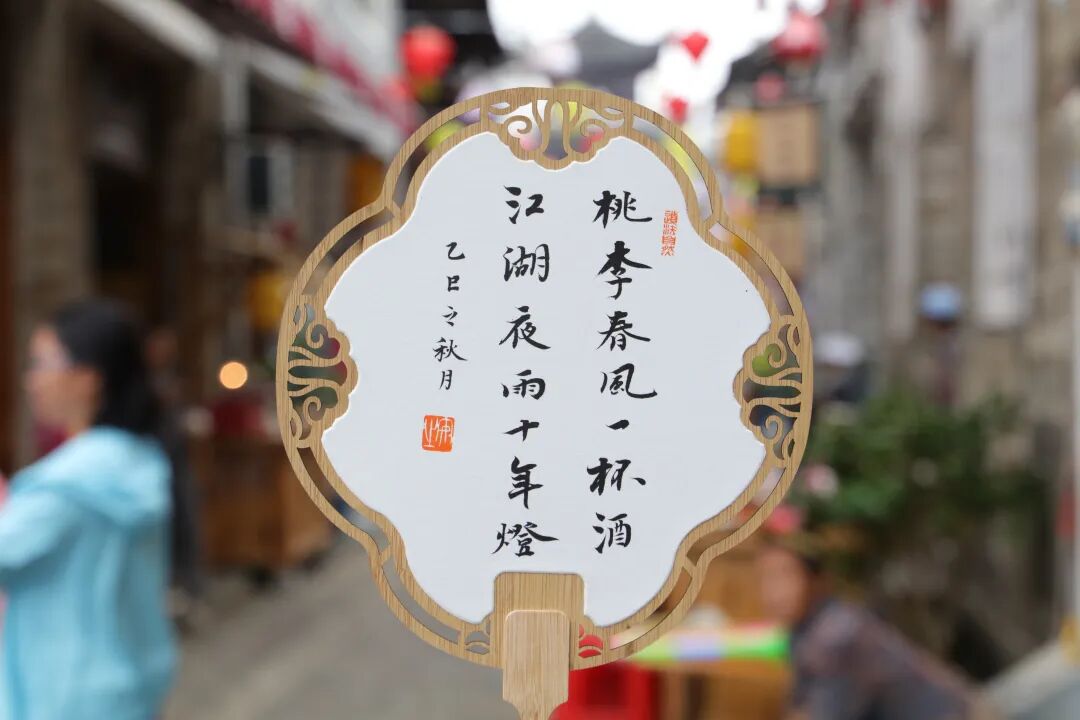 道法自然
桃李春風一杯酒
江湖夜雨十年燈
乙巳之秋月